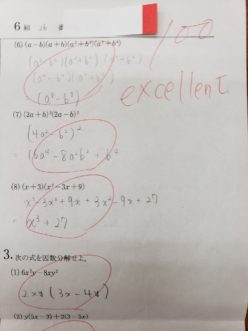 6 組 26 番
100
excellent
(6) (a−b)(a+b)(a²+b²)(a⁴+b⁴)
(a²−b²)(a²+b²)(a⁴+b⁴)
(a⁴−b⁴)(a⁴+b⁴)
(a⁸−b⁸)
(7) (2a+b)²(2a−b)²
(4a²−b²)²
=16a⁴−8a²b²+b⁴
(8) (x+3)(x²−3x+9)
x³−3x²+9x+3x²−9x+27
= x³+27
3. 次の式を因数分解せよ。
(1) 6x²y−8xy²
2xy(3x−4y)
(2) y(5x−3)+2(3−5x)